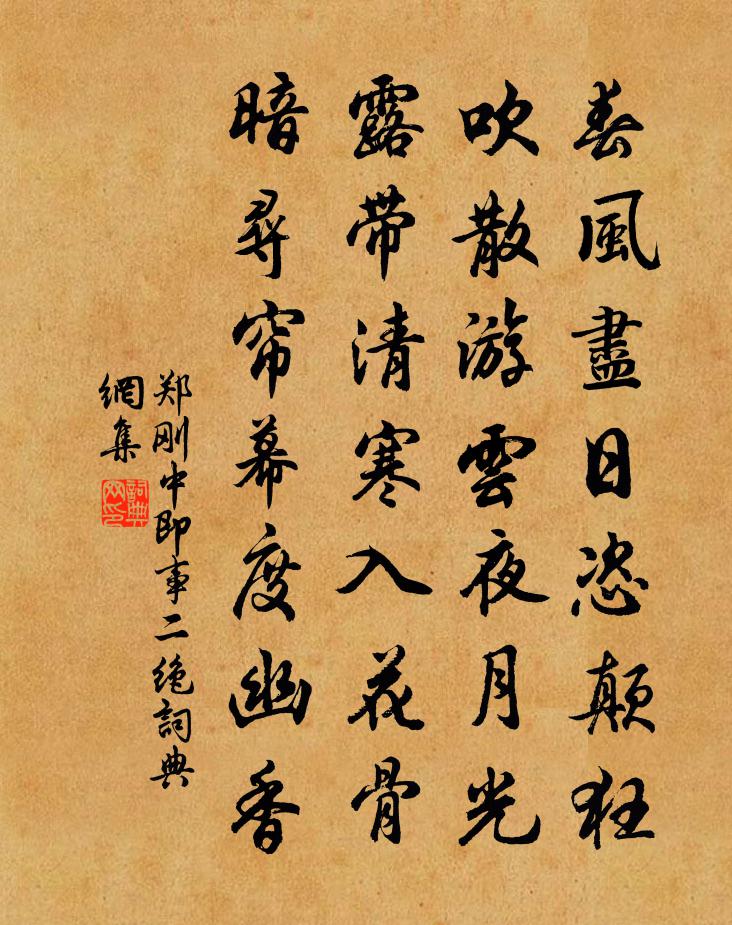 春風盡日恣顛狂
吹散游雲夜月光
露帶清寒入花骨
暗尋帘幕度幽香
郑刚中即事二绝詞典
網集
詞典
网印